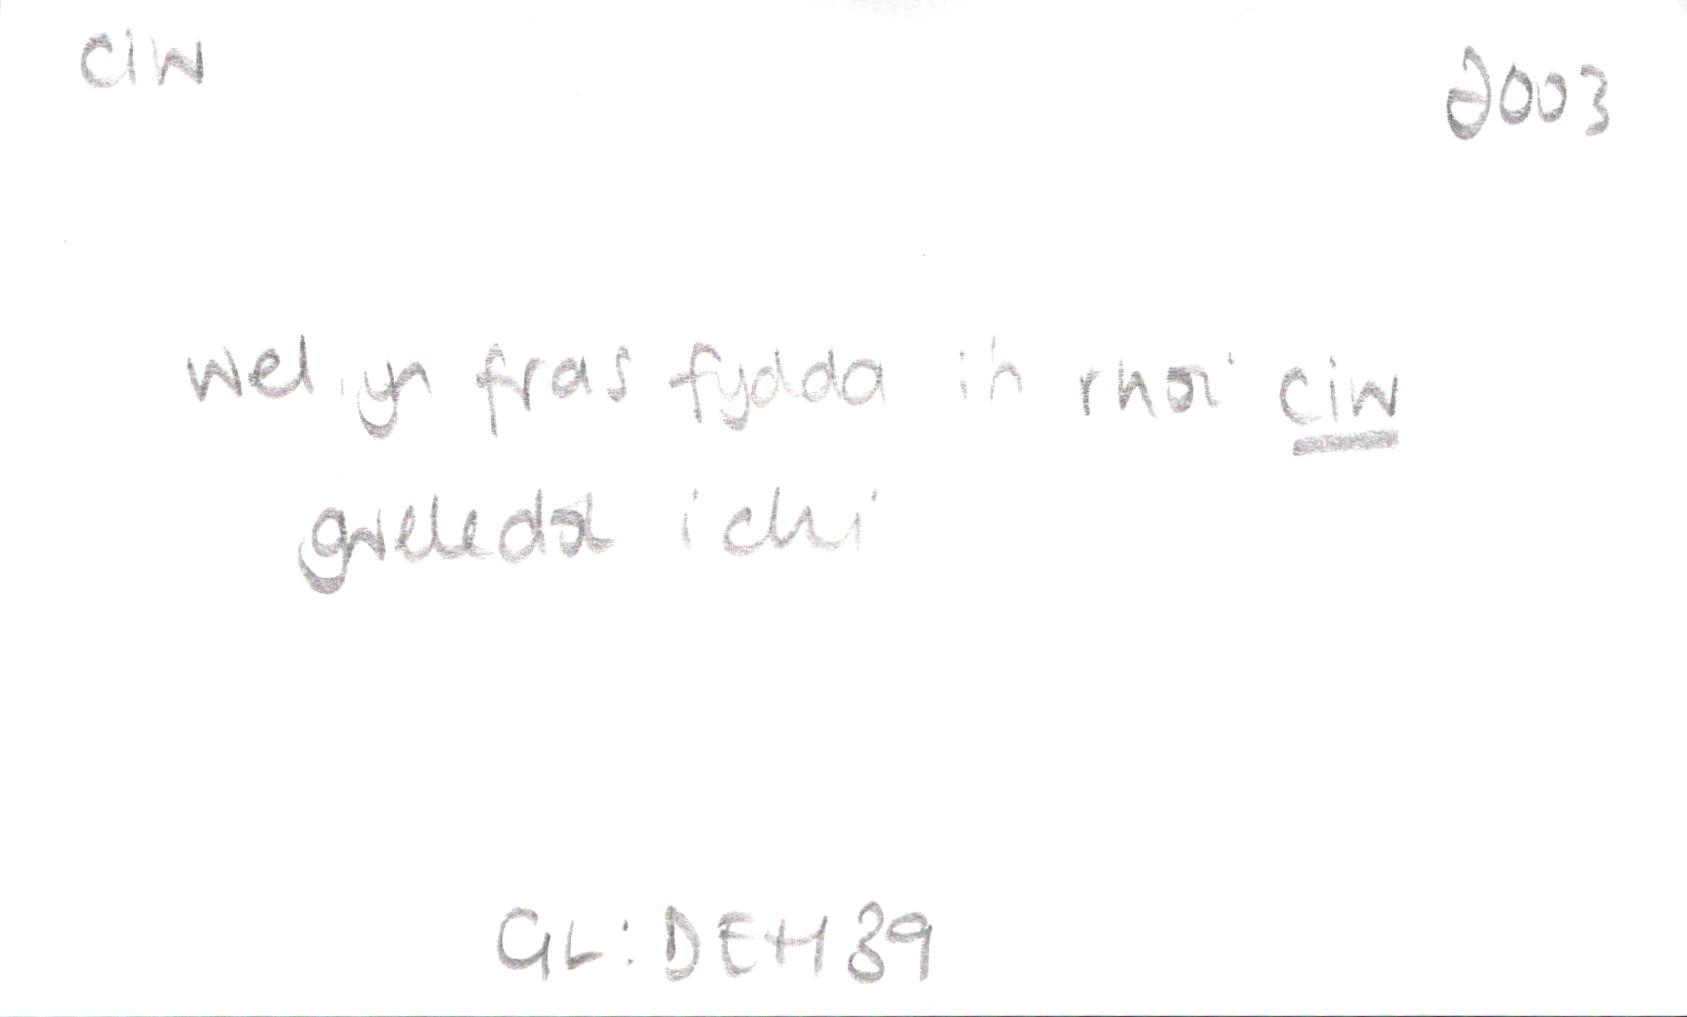 ciw
2003
Wel, yn fras fydda i'n rhoi ciw
gweledol i chi
GL: DEH 39